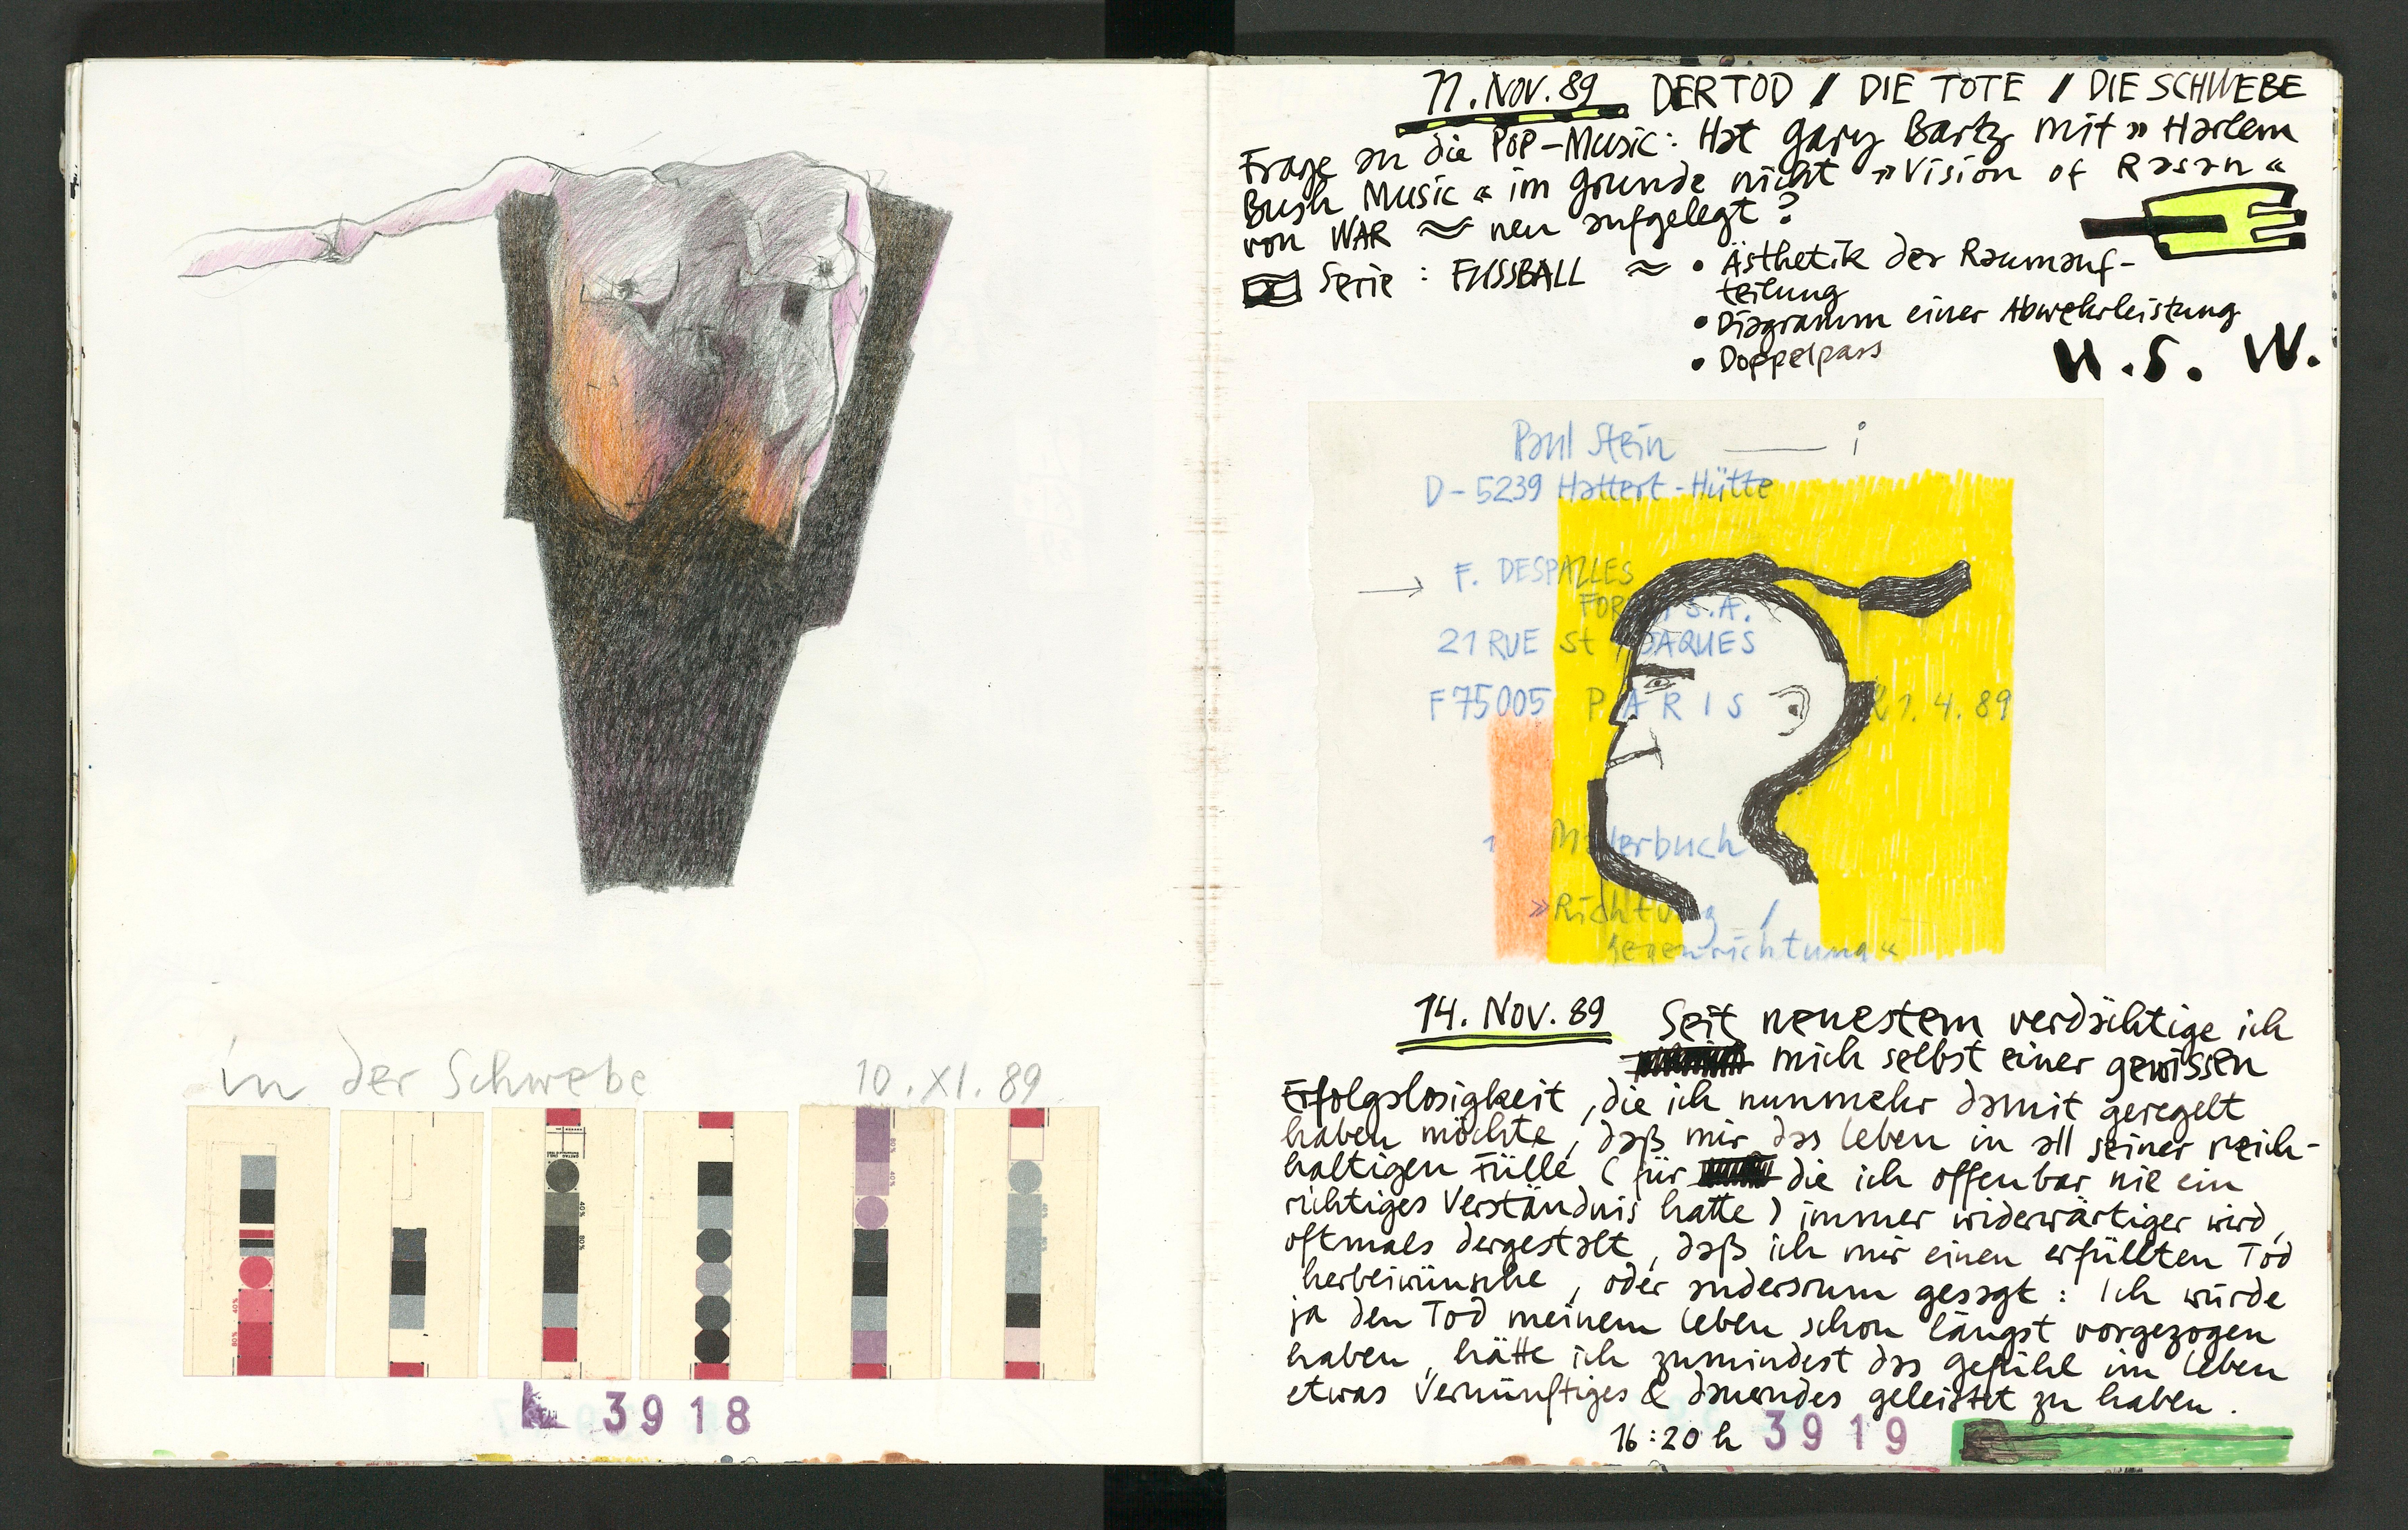 in der Schwebe 10.XI.89
40%
80%
40%
80%
80%
40%
3918
11. NOV. 89 DER TOD / DIE TOTE / DIE SCHWEBE
Frage an die POP-Music: Hat Gary Bartz mit » Harlem
Bush Music « im Grunde nicht »Vision of Rasan«
von WAR ≈ neu aufgelegt?
Serie: FUSSBALL ≈ • Ästhetik der Raumauf-
teilung
• Diagramm einer Abwehrleistung
• Doppelpass
U.S.W.
Paul Stein — i
D-5239 Hattert-Hütte
→ F. DESPALLES
S.A.
21 RUE St JAQUES
F 75005 PARIS 21.4.89
1 Malerbuch
»Richtung /
Gegenrichtung«
14. NOV. 89 Seit neuestem verdächtige ich
mich selbst einer gewissen
Erfolgslosigkeit, die ich nunmehr damit geregelt
haben möchte, daß mir das Leben in all seiner reich-
haltigen Fülle (für die ich offenbar nie ein
richtiges Verständnis hatte) immer widerwärtiger wird,
oftmals dergestalt, daß ich mir einen erfüllten Tod
herbeiwünsche, oder andersrum gesagt: Ich würde
ja den Tod meinem Leben schon längst vorgezogen
haben, hätte ich zumindest das Gefühl im Leben
etwas Vernünftiges & dauerndes geleistet zu haben.
16:20 h 3919